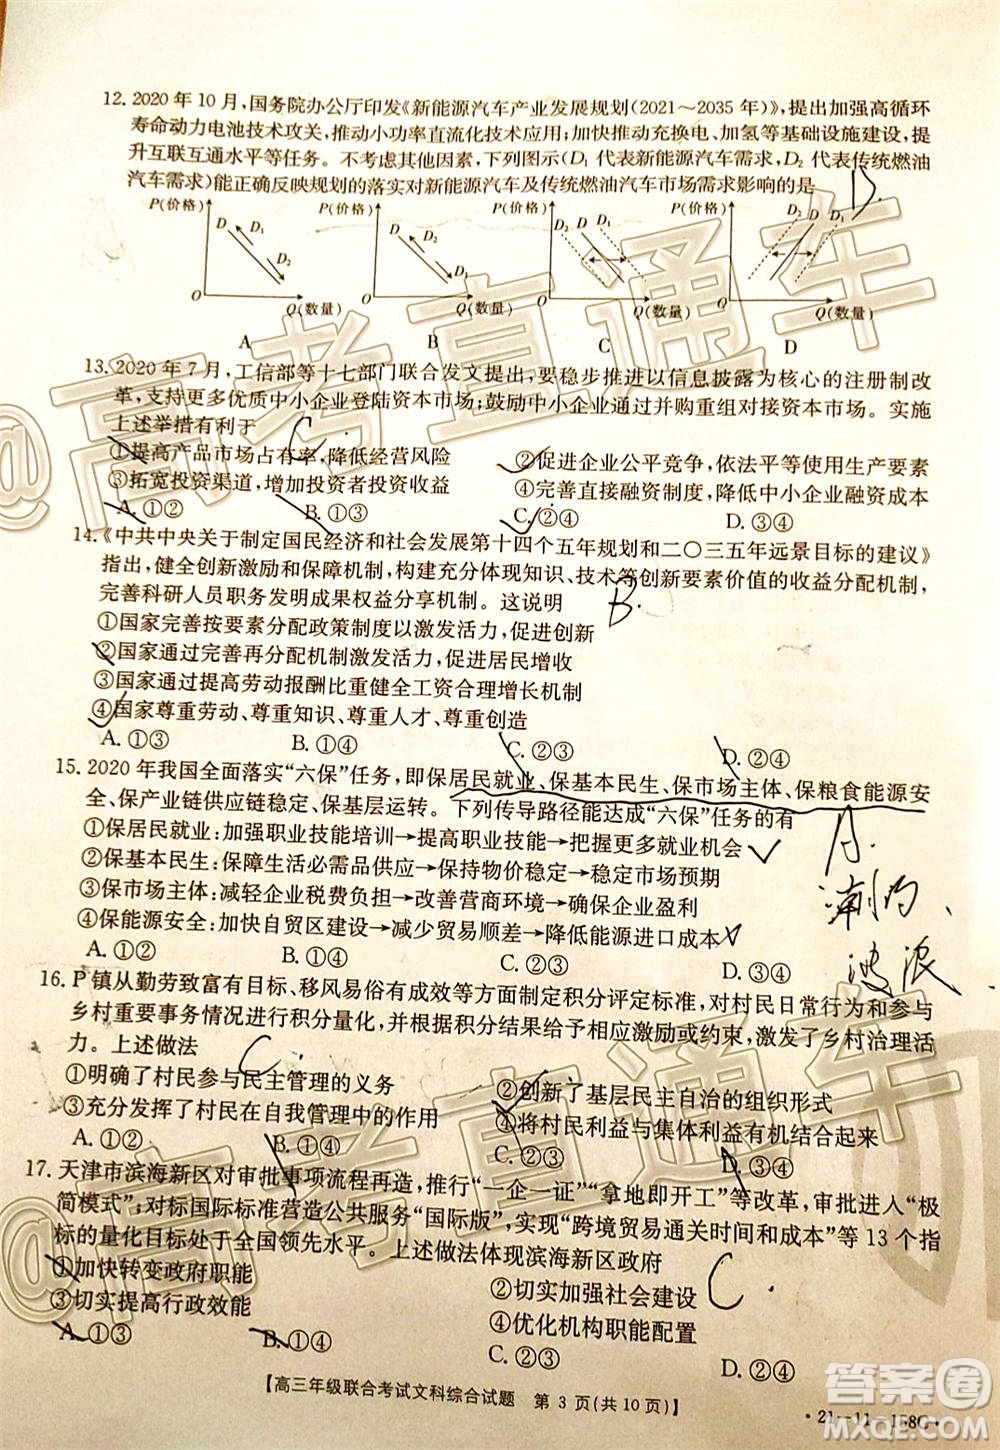 12. 2020 年 10 月,国务院办公厅印发《新能源汽车产业发展规划(2021～2035 年)》,提出加强高循环
寿命动力电池技术攻关,推动小功率直流化技术应用;加快推动充换电、加氢等基础设施建设,提
升互联互通水平等任务。不考虑其他因素,下列图示(D₁ 代表新能源汽车需求,D₂ 代表传统燃油
汽车需求)能正确反映规划的落实对新能源汽车及传统燃油汽车市场需求影响的是 D.
P(价格) P(价格) P(价格) P(价格)
D₂ D₁ D₁ D₂ D₂ D D₁ D₂ D D₁
D₂ D₁ D₁ D₂
O Q(数量) O Q(数量) O Q(数量) O Q(数量)
A B C D
13. 2020 年 7 月,工信部等十七部门联合发文提出,要稳步推进以信息披露为核心的注册制改
革,支持更多优质中小企业登陆资本市场;鼓励中小企业通过并购重组对接资本市场。实施
上述举措有利于 C.
①提高产品市场占有率,降低经营风险 ②促进企业公平竞争,依法平等使用生产要素
③拓宽投资渠道,增加投资者投资收益 ④完善直接融资制度,降低中小企业融资成本
A. ①② B. ①③ C. ②④ D. ③④
14.《中共中央关于制定国民经济和社会发展第十四个五年规划和二〇三五年远景目标的建议》
指出,健全创新激励和保障机制,构建充分体现知识、技术等创新要素价值的收益分配机制,
完善科研人员职务发明成果权益分享机制。这说明 B.
①国家完善按要素分配政策制度以激发活力,促进创新
②国家通过完善再分配机制激发活力,促进居民增收
③国家通过提高劳动报酬比重健全工资合理增长机制
④国家尊重劳动、尊重知识、尊重人才、尊重创造
A. ①③ B. ①④ C. ②③ D. ②④
15. 2020 年我国全面落实“六保”任务,即保居民就业、保基本民生、保市场主体、保粮食能源安
全、保产业链供应链稳定、保基层运转。下列传导路径能达成“六保”任务的有
①保居民就业:加强职业技能培训→提高职业技能→把握更多就业机会
A.
②保基本民生:保障生活必需品供应→保持物价稳定→稳定市场预期
③保市场主体:减轻企业税费负担→改善营商环境→确保企业盈利
④保能源安全:加快自贸区建设→减少贸易顺差→降低能源进口成本
A. ①② B. ①④ C. ②③ D. ③④
波浪
16. P 镇从勤劳致富有目标、移风易俗有成效等方面制定积分评定标准,对村民日常行为和参与
乡村重要事务情况进行积分量化,并根据积分结果给予相应激励或约束,激发了乡村治理活
力。上述做法 C.
①明确了村民参与民主管理的义务 ②创新了基层民主自治的组织形式
③充分发挥了村民在自我管理中的作用 ④将村民利益与集体利益有机结合起来
A. ①② B. ①③ C. ②④ D. ③④
17. 天津市滨海新区对审批事项流程再造,推行“一企一证”“拿地即开工”等改革,审批进入“极
简模式”;对标国际标准营造公共服务“国际版”,实现“跨境贸易通关时间和成本”等 13 个指
标的量化目标处于全国领先水平。上述做法体现滨海新区政府
①加快转变政府职能 ②切实加强社会建设 C.
③切实提高行政效能 ④优化机构职能配置
A. ①③ B. ①④ C. ②③ D. ②④
【高三年级联合考试文科综合试题 第 3 页(共 10 页)】
·21－11－158C·
@高考直通车
@高考直通车
答案圈
MXQE.COM